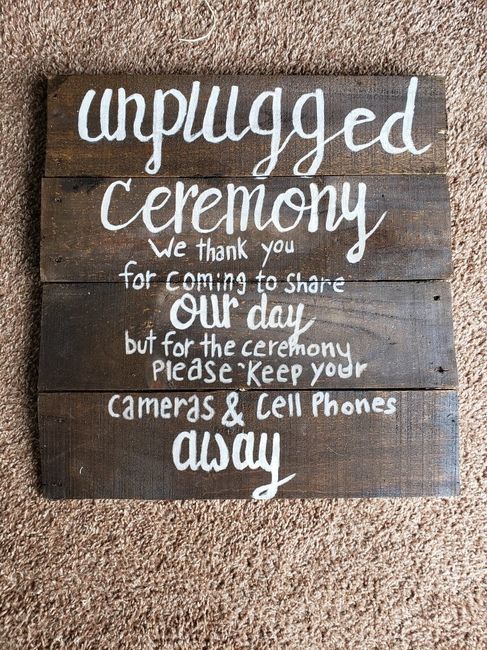 unplugged
ceremony
We thank you
for coming to share
our day
but for the ceremony
Please Keep your
cameras & Cell Phones
away